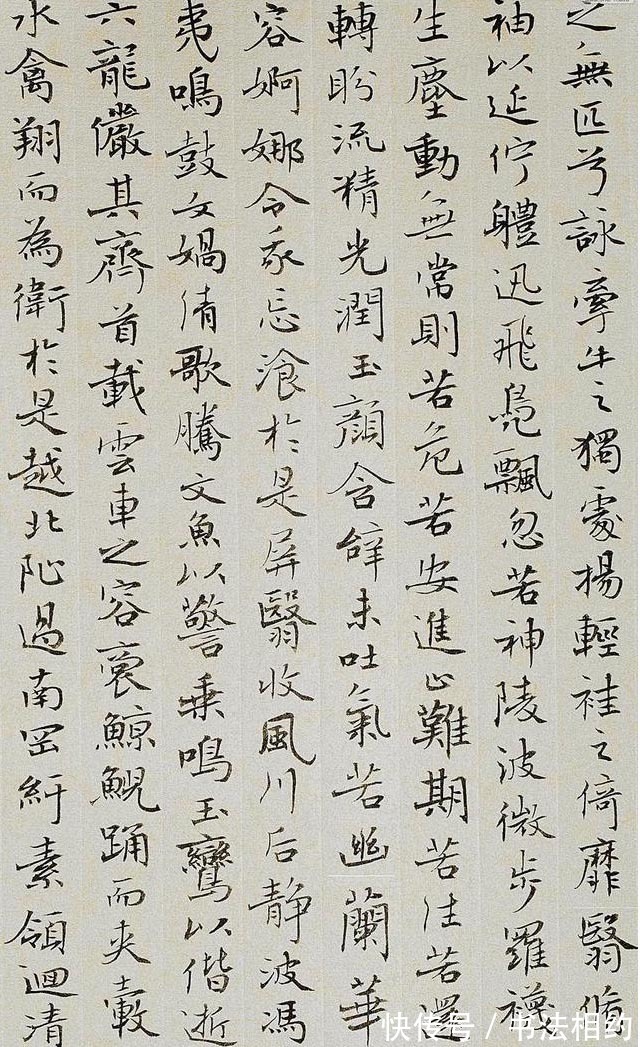 之無匹兮詠牽牛之獨處揚輕袿之倚靡翳脩
袖以延佇體迅飛鳧飄忽若神陵波微步羅襪
生塵動無常則若危若安進止難期若往若還
轉盼流精光潤玉顏含辭未吐氣若幽蘭華
容婀娜令我忘飡於是屏翳收風川后静波馮
夷鳴鼓女媧清歌騰文魚以警乗鳴玉鸞以偕逝
六龍儼其齊首載雲車之容裔鯨鯢踊而夾轂
水禽翔而為衛於是越北沚過南岡紆素領迴清
快传号 / 书法相约